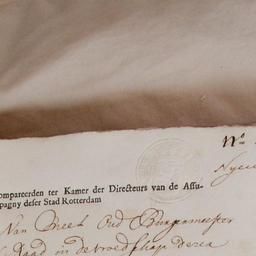 N.º
ompareerden ter Kamer der Directeurs van de Assu-
pagny deser Stad Rotterdam
Van Oud Burgermeester
Raad in de vroedschap